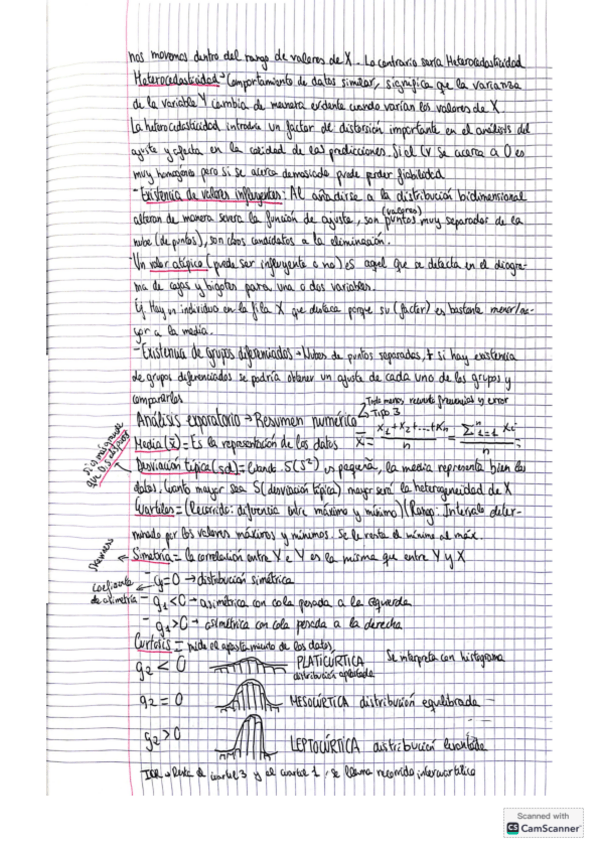 nos movemos dentro del rango de valores de X. Lo contrario sería Heterocedasticidad
Heterocedasticidad → Comportamiento de datos similar, significa que la varianza
de la variable Y cambia de manera evidente cuando varían los valores de X.
La heterocedasticidad introduce un factor de distorsión importante en el análisis del
ajuste y afecta en la calidad de las predicciones. Si el CV se acerca a 0 es
muy homogéneo pero si se acerca demasiado puede perder fiabilidad
- Existencia de valores influyentes: Al añadirse a la distribución bidimensional
alteran de manera severa la función de ajuste, son puntos (valores) muy separados de la
nube (de puntos), son claros candidatos a la eliminación.
- Un valor atípico (puede ser influyente o no) es aquel que se detecta en el diagra-
ma de cajas y bigotes para una o dos variables.
Hay un individuo en la fila X que destaca porque su (factor) es bastante menor/ma-
yor a la media.
- Existencia de grupos diferenciados → Nubes de puntos separadas, + si hay existencia
de grupos diferenciados se podría obtener un ajuste de cada uno de los grupos y
compararlos
Todo menos recuento frecuencias y error
Análisis exporatorio → Resumen numérico → Tipo 3
Media (x̄) = Es la representación de los datos x̄ = x1+x2+...+xn / n = Σ n i=1 xi / n
Si es más grande que 0,5
Desviación típica (sd) = Cuando S(S²) es pequeña, la media representa bien los
datos. Cuanto mayor sea S (desviación típica) mayor será la heterogeneidad de X
Cuartiles = (Recorrido: diferencia entre máximo y mínimo) (Rang: Intervalo deter-
minado por los valores máximos y mínimos. Se le resta el mínimo al máx.
Skewness
Simetría = la correlación entre X e Y es la misma que entre Y y X
Coeficiente de asimetría
- g=0 → distribución simétrica
- g1<0 → asimétrica con cola pesada a la izquierda
- g1>0 → asimétrica con cola pesada a la derecha
Curtosis = mide el apuntamiento de los datos
g2 < 0 PLATICÚRTICA distribución aplastada Se interpreta con histograma
g2 = 0 MESOCÚRTICA distribución equilibrada
g2 > 0 LEPTOCÚRTICA distribución levantada
IQR → Resta el cuartil 3 y el cuartil 1, se llama recorrido intercuartílico
Scanned with
CS CamScanner